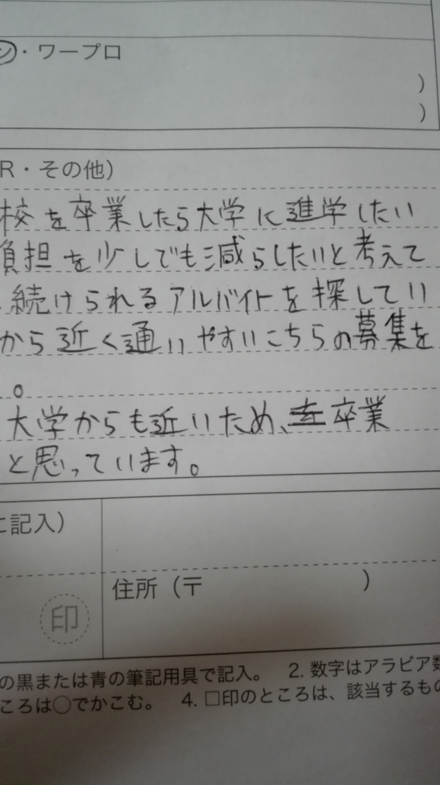 ン・ワープロ
)
)
R・その他)
校を卒業したら大学に進学したい
負担を少しでも減らしたいと考えて
続けられるアルバイトを探してい
から近く通いやすいこちらの募集を
。
大学からも近いため、卒業
と思っています。
に記入)
印
住所(〒 )
の黒または青の筆記用具で記入。 2. 数字はアラビア数
ころは○でかこむ。 4. □印のところは、該当するもの